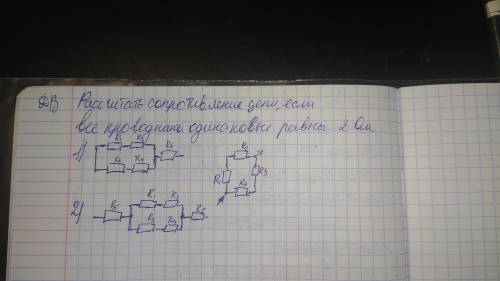 ДЗ Рассчитать сопротивление цепи, если
все проводники одинаковые равны 2 Ом
1)
R1 R2 R5
R3 R4
R2
R1 R3
R4
2)
R5 R1 R2 R6
R3 R4